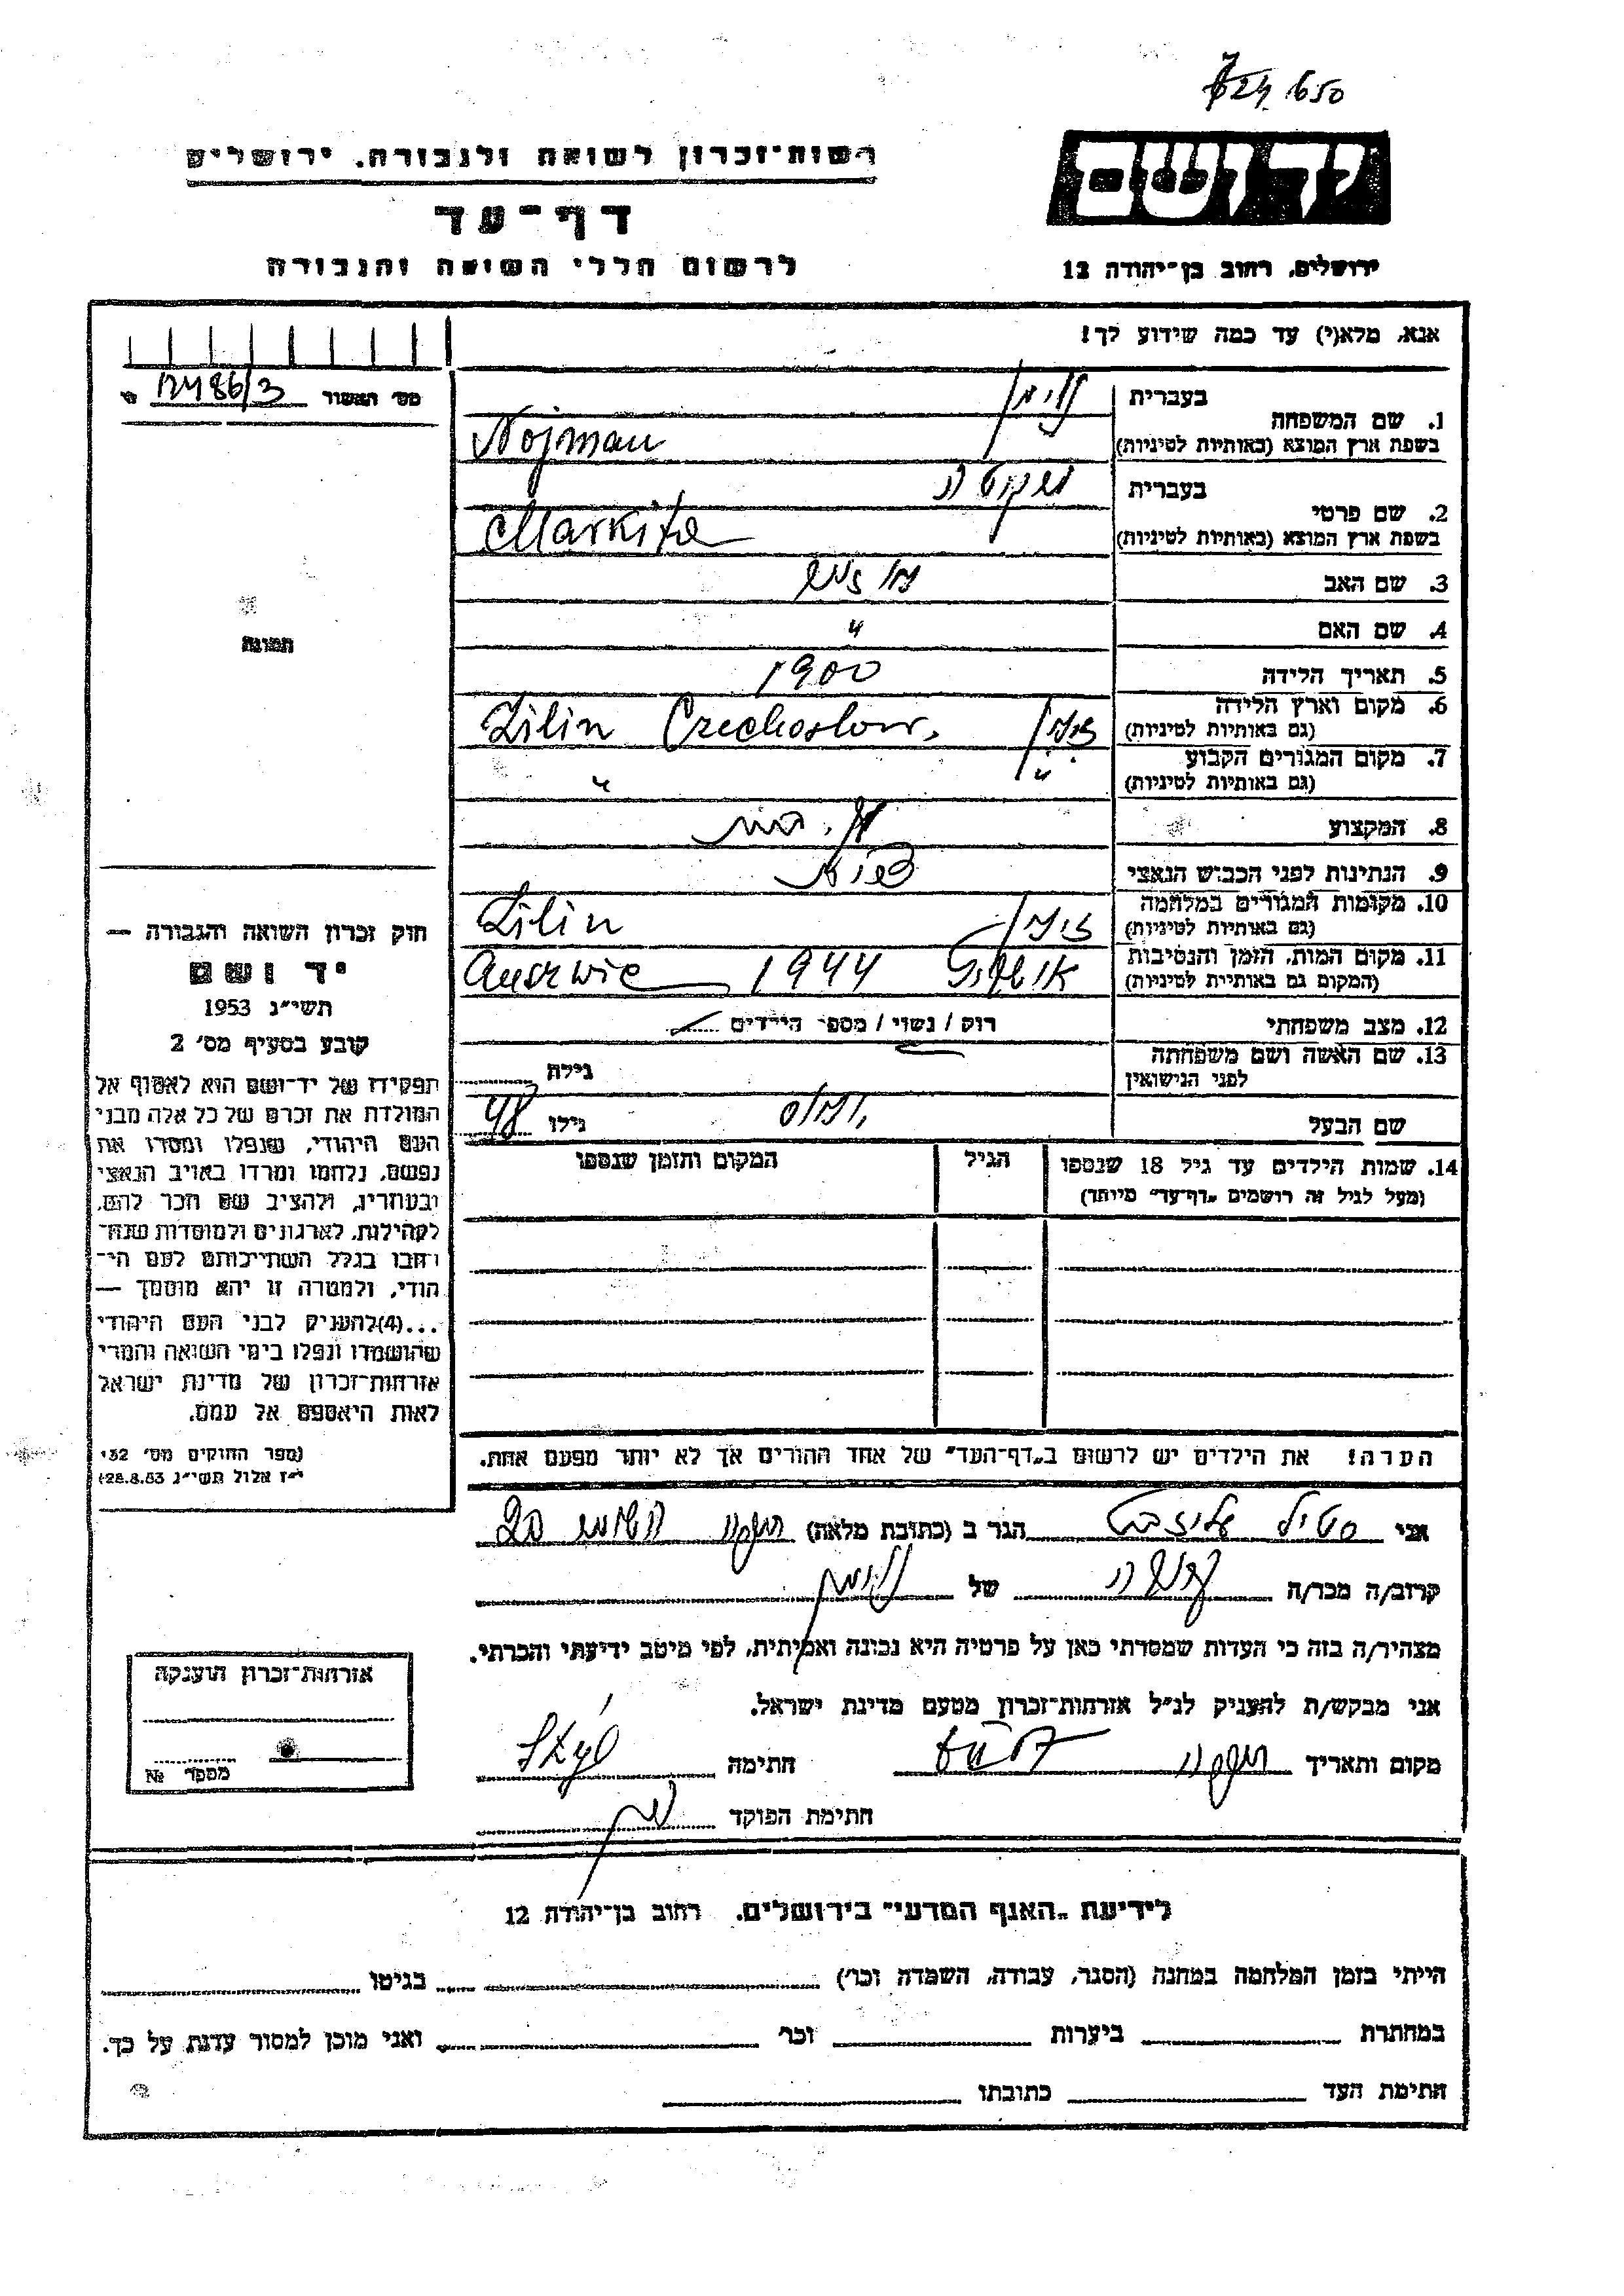 624 650
יד ושם
רשות־זכרון לשואה ולגבורה, ירושלים
דף־עד
לרשום חללי השואה והגבורה
ירושלים, רחוב בן־יהודה 12
אנא, מלא(י) עד כמה שידוע לך!
מס׳ האשור 12486/3
1. שם המשפחה בעברית נוימן
בשפת ארץ המוצא (באותיות לטיניות) Nojman
2. שם פרטי בעברית
בשפת ארץ המוצא (באותיות לטיניות) Markita
3. שם האב
4. שם האם "
5. תאריך הלידה 1900
6. מקום וארץ הלידה (גם באותיות לטיניות) זילין Zilin Czechoslow.
7. מקום המגורים הקבוע (גם באותיות לטיניות) " "
8. המקצוע
9. הנתינות לפני הכבוש הנאצי
10. מקומות המגורים במלחמה (גם באותיות לטיניות) זילין Zilin
11. מקום המות, הזמן והנסיבות (המקום גם באותיות לטיניות) 1944 Auszwic
12. מצב משפחתי רוק / נשוי / מספר הילדים
13. שם האשה ושם משפחתה לפני הנישואין גילה
שם הבעל גילו 48
14. שמות הילדים עד גיל 18 שנספו הגיל המקום והזמן שנספו
(מעל לגיל זה רושמים „דף־עד" מיוחד)
הערה! את הילדים יש לרשום ב„דף־העד" של אחד ההורים אך לא יותר מפעם אחת.
תמונה
חוק זכרון השואה והגבורה —
יד ושם
תשי״ג 1953
קובע בסעיף מס׳ 2
תפקידו של יד־ושם הוא לאסוף אל
המולדת את זכרם של כל אלה מבני
העם היהודי, שנפלו ומסרו את
נפשם, נלחמו ומרדו באויב הנאצי
ובעוזריו, ולהציב שם וזכר להם,
לקהילות, לארגונים ולמוסדות שנח־
רבו בגלל השתייכותם לעם הי־
הודי, ולמטרה זו יהא מוסמך —
...(4)להעניק לבני העם היהודי
שהושמדו ונפלו בימי השואה והמרי
אזרחות־זכרון של מדינת ישראל
לאות היאספם אל עמם.
(ספר החוקים מס׳ 132
י״ז אלול תשי״ג 28.8.53)
אני סטיל אליזבט הגר ב (כתובת מלאה) 20
קרוב/ה מכר/ה של נוימן
מצהיר/ה בזה כי העדות שמסרתי כאן על פרטיה היא נכונה ואמיתית, לפי מיטב ידיעתי והכרתי.
אני מבקש/ת להעניק לנ״ל אזרחות־זכרון מטעם מדינת ישראל.
מקום ותאריך חתימה Sztyl
חתימת הפוקד
אזרחות־זכרון הוענקה
מספר №
לידיעת „האגף המדעי" בירושלים, רחוב בן־יהודה 12
הייתי בזמן המלחמה במחנה (הסגר, עבודה, השמדה וכו׳) בגיטו
במחתרת ביערות וכו׳ ואני מוכן למסור עדות על כך.
חתימת העד כתובתו